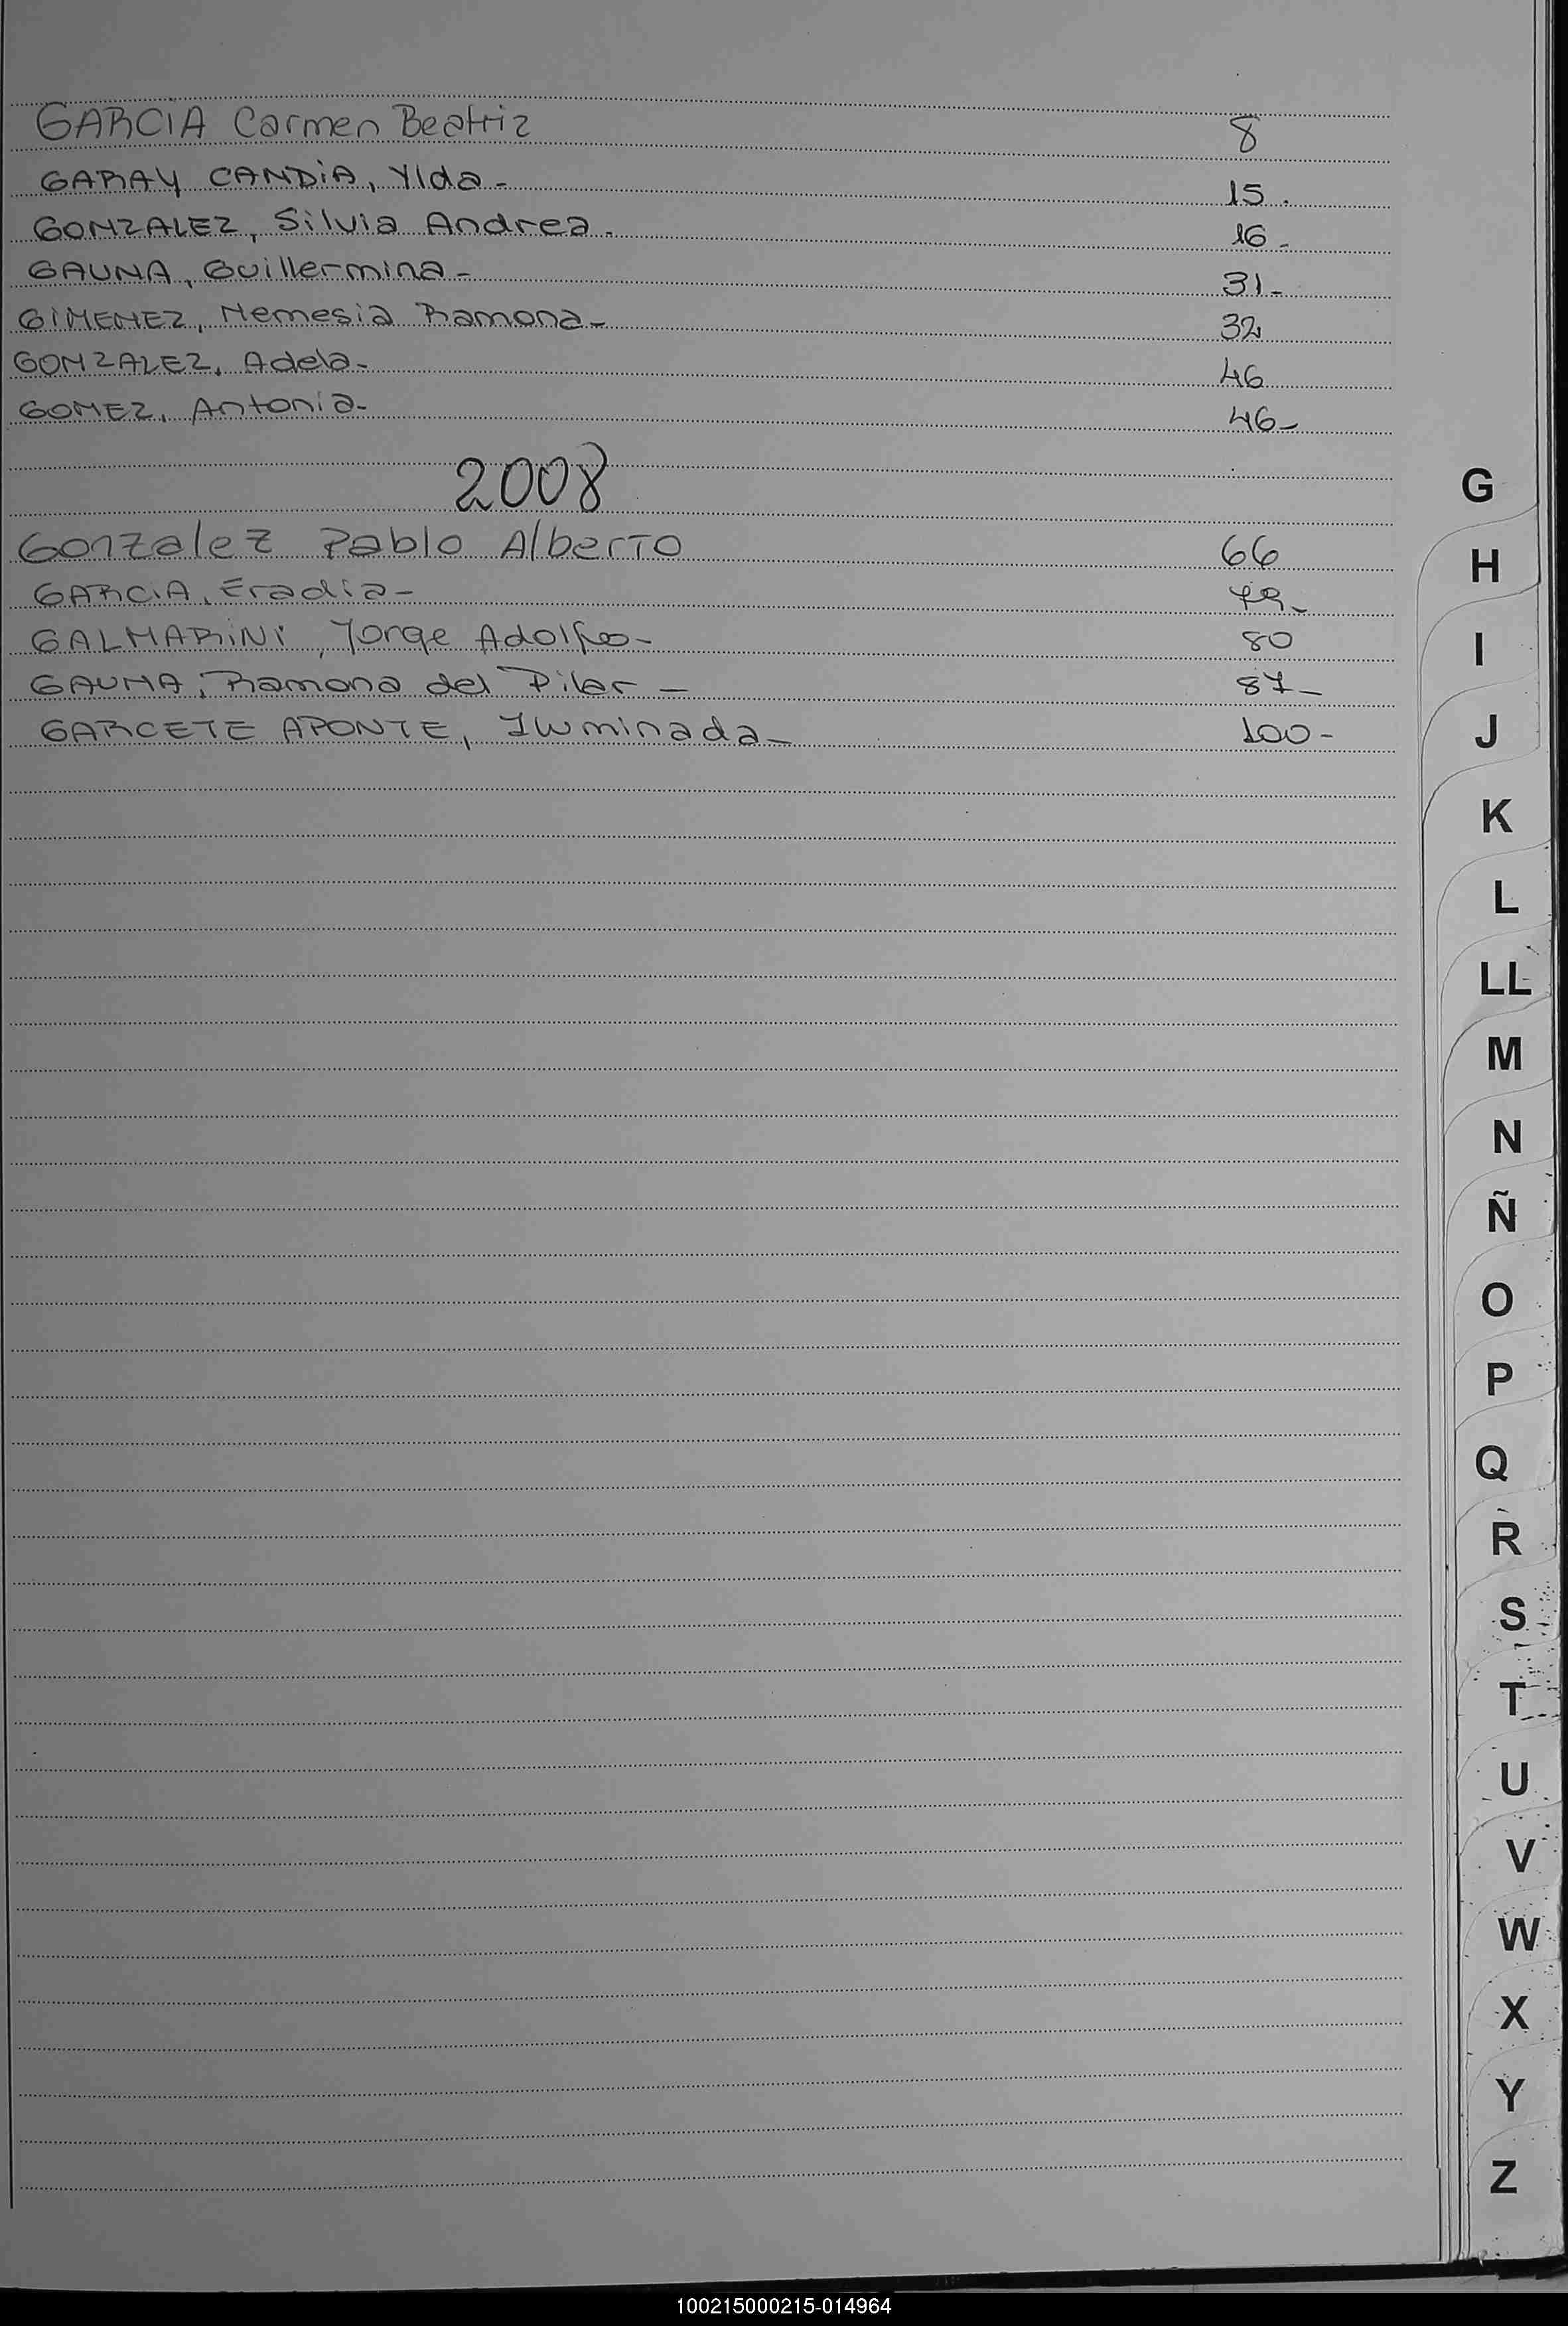 GARCIA Carmen Beatriz 8
GARAY CANDIA, Ylda- 15.
GONZALEZ, Silvia Andrea. 16-
GAUNA, Guillermina- 31-
GIMENEZ, Nemesia Ramona- 32
GONZALEZ, Adela- 46
GOMEZ, Antonia- 46-
2008
Gonzalez Pablo Alberto 66
GARCIA, Eradia- 79-
GALMARINI, Jorge Adolfo- 80
GAUNA, Ramona del Pilar- 87-
GARCETE APONTE, Iluminada- 100-
G
H
I
J
K
L
LL
M
N
Ñ
O
P
Q
R
S
T
U
V
W
X
Y
Z
100215000215-014964